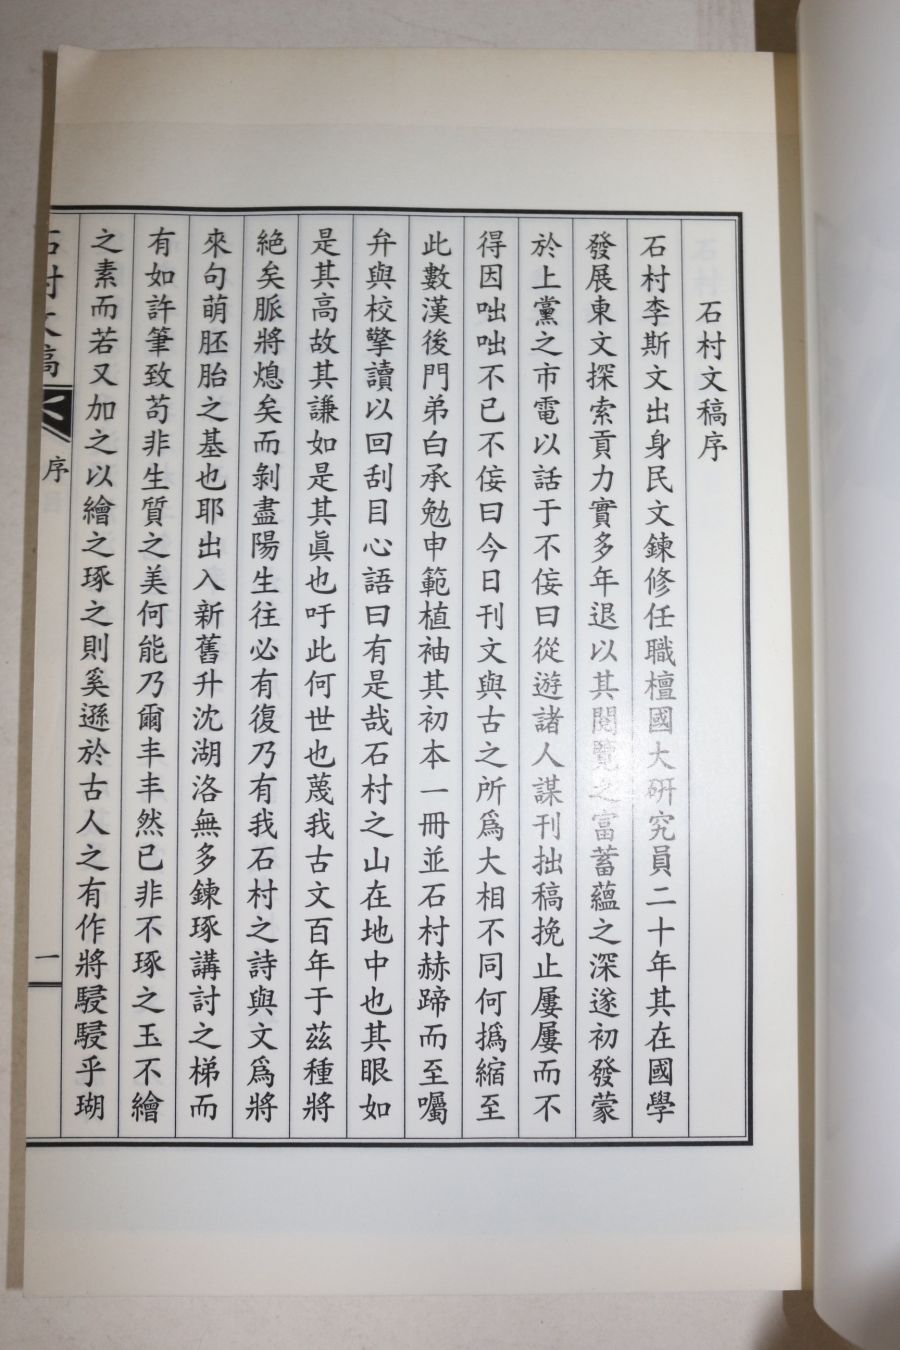 石村文稿序
石村李斯文出身民文鍊修任職檀國大硏究員二十年其在國學
發展東文探索貢力實多年退以其閱覽之富蓄蘊之深遂初發蒙
於上黨之市電以話于不侫曰從遊諸人謀刊拙稿挽止屢屢而不
得因咄咄不已不侫曰今日刊文與古之所爲大相不同何撝縮至
此數漢後門弟白承勉申範植袖其初本一冊並石村赫蹄而至囑
弁與校擎讀以回刮目心語曰有是哉石村之山在地中也其眼如
是其高故其謙如是其眞也吁此何世也蔑我古文百年于茲種將
絶矣脈將熄矣而剝盡陽生往必有復乃有我石村之詩與文爲將
來句萌胚胎之基也耶出入新舊升沈湖洛無多鍊琢講討之梯而
有如許筆致苟非生質之美何能乃爾丰丰然已非不琢之玉不繪
之素而若又加之以繪之琢之則奚遜於古人之有作將駸駸乎瑚
石村文稿
序
一